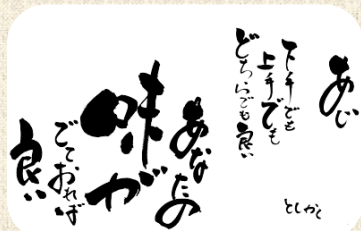 あじ
下手でも
上手でも
どちらでも良い
あなたの
味が
でておれば
良い
としかく